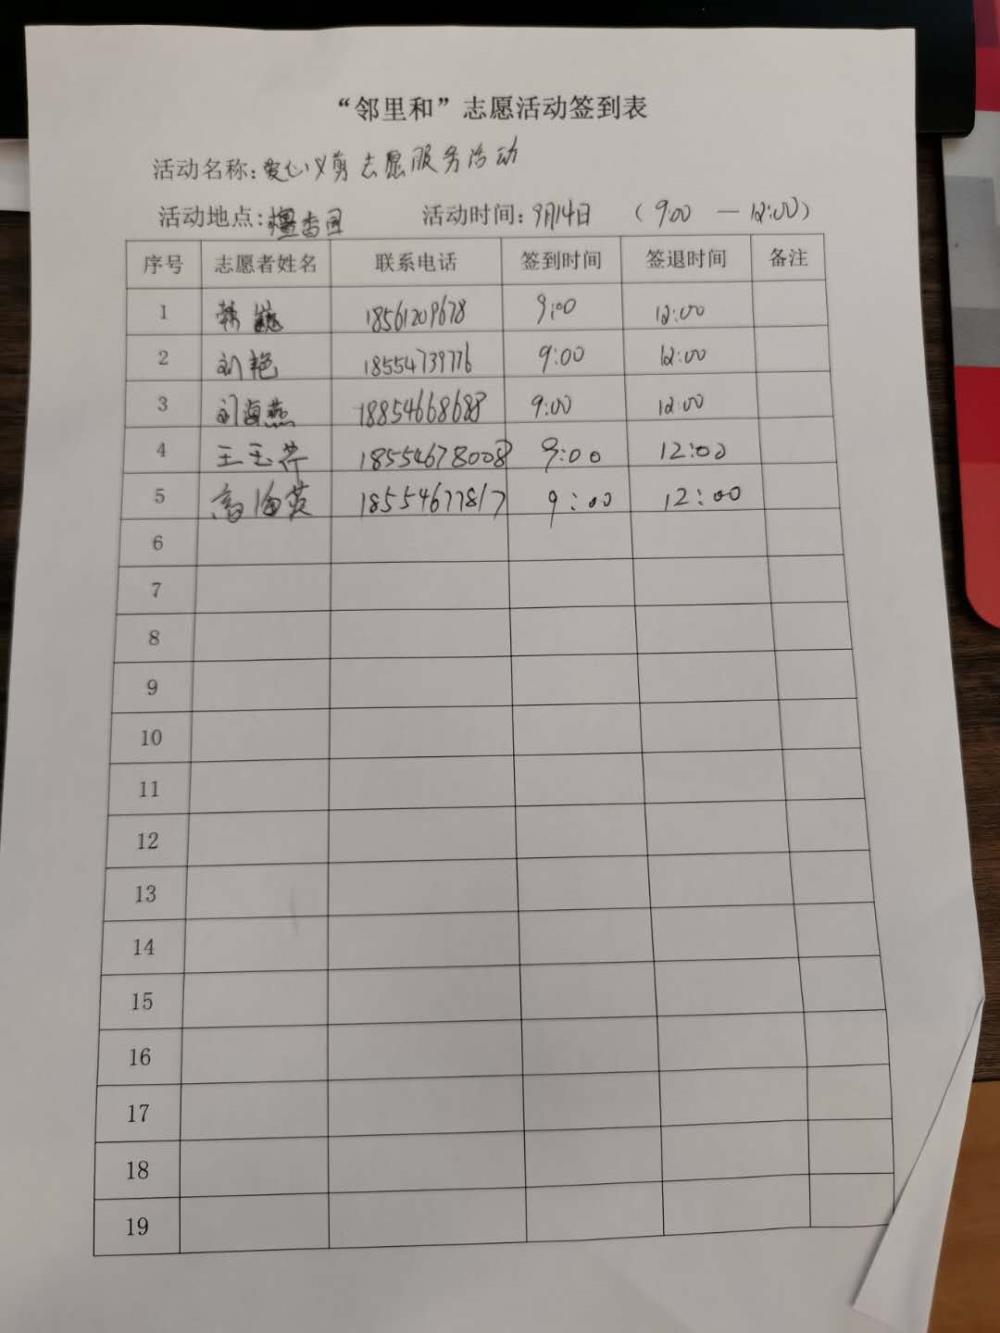 “邻里和”志愿活动签到表
活动名称:爱心义剪志愿服务活动
活动地点:檀香园 活动时间:9月14日 (9:00 — 12:00)
序号 志愿者姓名 联系电话 签到时间 签退时间 备注
1 韩巍 18561209678 9:00 12:00
2 刘艳 18554739776 9:00 12:00
3 刘海燕 18854668688 9:00 12:00
4 王玉芹 18554678008 9:00 12:00
5 高海英 18554677817 9:00 12:00
6
7
8
9
10
11
12
13
14
15
16
17
18
19